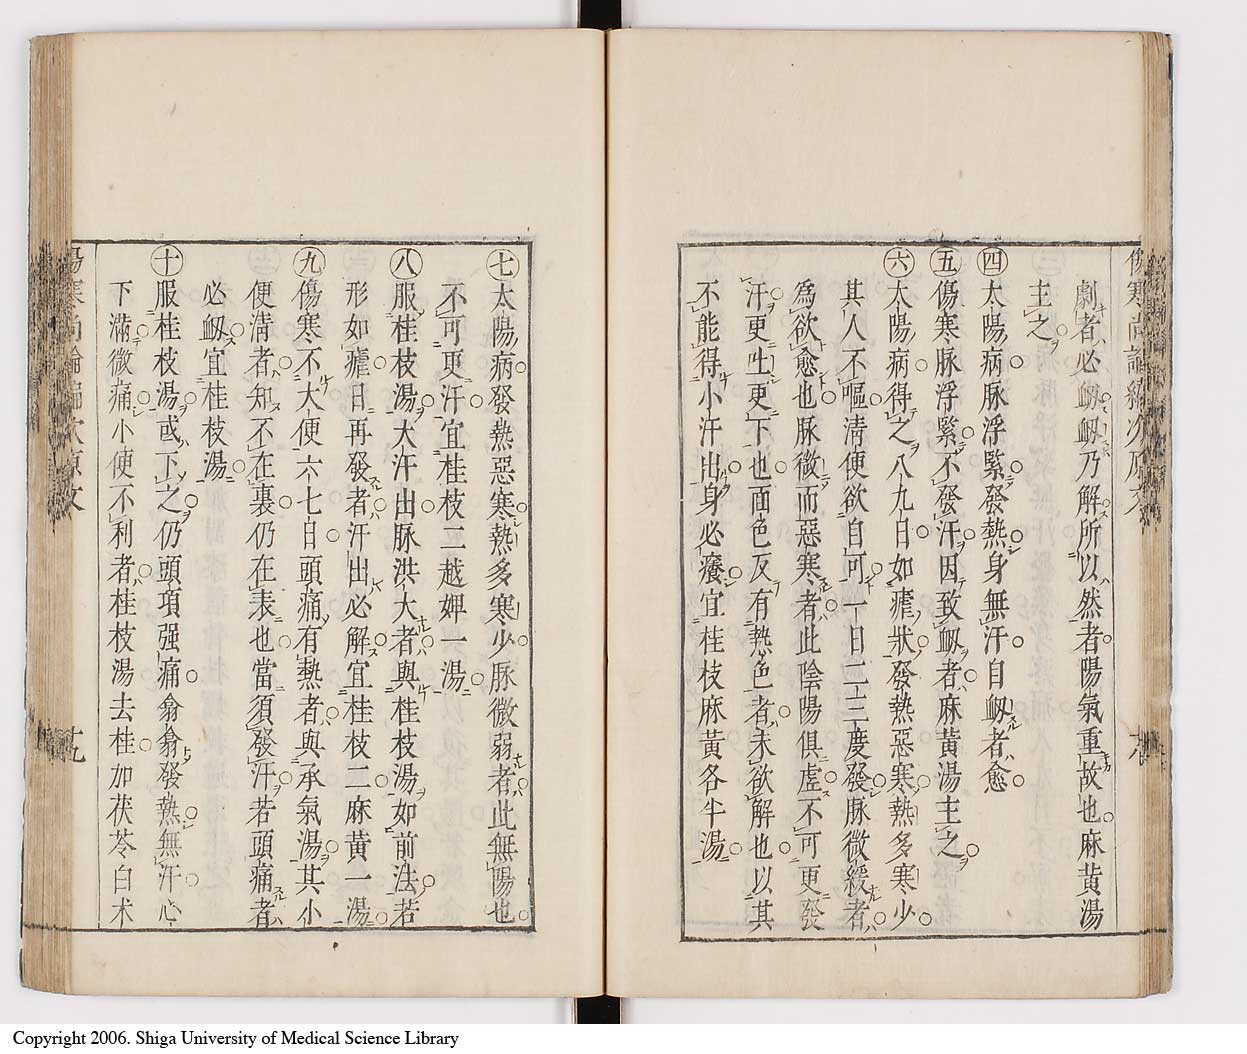 劇者必衂衂乃解所以然者陽氣重故也麻黄湯
主之
㊃太陽病脉浮緊發熱身無汗自衂者愈
㊄傷寒脉浮緊不發汗因致衂者麻黄湯主之
㊅太陽病得之八九日如瘧狀發熱惡寒熱多寒少
其人不嘔清便欲自可一日二三度發脉微緩者
為欲愈也脉微而惡寒者此陰陽俱虚不可更發
汗更吐更下也面色反有熱色者未欲解也以其
不能得小汗出身必癢宜桂枝麻黄各半湯
㊆太陽病發熱惡寒熱多寒少脉微弱者此無陽也
不可更汗宜桂枝二越婢一湯
㊇服桂枝湯大汗出脉洪大者與桂枝湯如前法若
形如瘧日再發者汗出必解宜桂枝二麻黄一湯
㊈傷寒不大便六七日頭痛有熱者與承氣湯其小
便清者知不在裏仍在表也當須發汗若頭痛者
必衂宜桂枝湯
㊉服桂枝湯或下之仍頭項强痛翕翕發熱無汗心
下滿微痛小便不利者桂枝湯去桂加茯苓白术
Copyright 2006. Shiga University of Medical Science Library